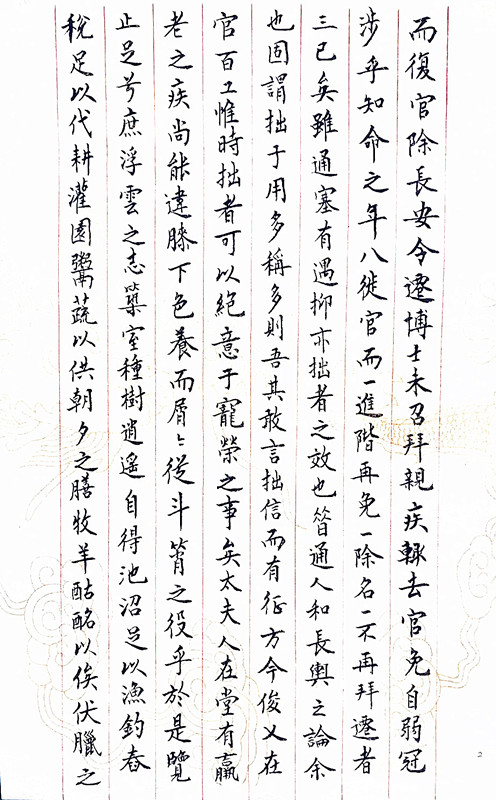 而復官除長安令遷博士未召拜親疾輒去官免自弱冠
涉乎知命之年八徙官而一進階再免一除名一不再拜遷者
三已矣雖通塞有遇抑亦拙者之效也昔通人和長輿之論余
也固謂拙于用多稱多則吾其敢言拙信而有征方今俊乂在
官百工惟時拙者可以絕意于寵榮之事矣太夫人在堂有羸
老之疾尚能違膝下色養而屑〻從斗筲之役乎於是覽
止足兮庶浮雲之志築室種樹逍遥自得池沼足以漁釣舂
稅足以代耕灌園鬻蔬以供朝夕之膳牧羊酤酪以俟伏臘之
2